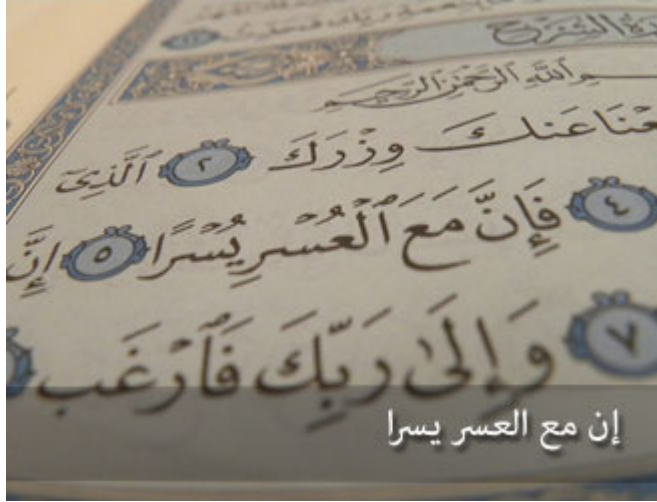 سورة الشرح
بسم الله الرحمن الرحيم
عَنكَ وِزْرَكَ ٢ ٱلَّذِىٓ
٤ فَإِنَّ مَعَ ٱلْعُسْرِ يُسْرًا ٥ إِنَّ
٧ وَإِلَىٰ رَبِّكَ فَٱرْغَب
إن مع العسر يسرا